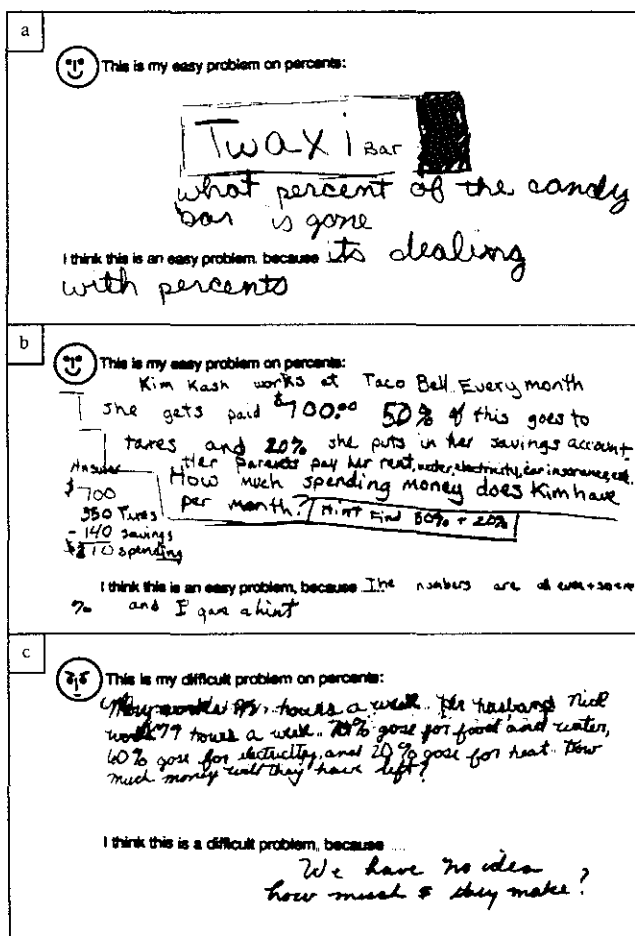 a
This is my easy problem on percents:
Twaxi Bar
what percent of the candy
bar is gone
I think this is an easy problem, because its dealing
with percents
b
This is my easy problem on percents:
Kim Kash works at Taco Bell. Every month
she gets paid $700.00 50% of this goes to
taxes and 20% she puts in her savings account.
Her parents pay her rent, water, electricity, car insurance, ect.
How much spending money does Kim have
per month? Hint Find 50% + 20%
Answer
$700
350 Taxes
- 140 savings
$210 spending
I think this is an easy problem, because The numbers are all even + so are
% and I gave a hint
c
This is my difficult problem on percents:
Mary works hours a week. Her husband Nick
works 79 hours a week. 70% gose for food and water,
60% gose for electricity, and 20% gose for heat. How
much money will they have left?
I think this is a difficult problem, because
We have no idea
how much $ they make?